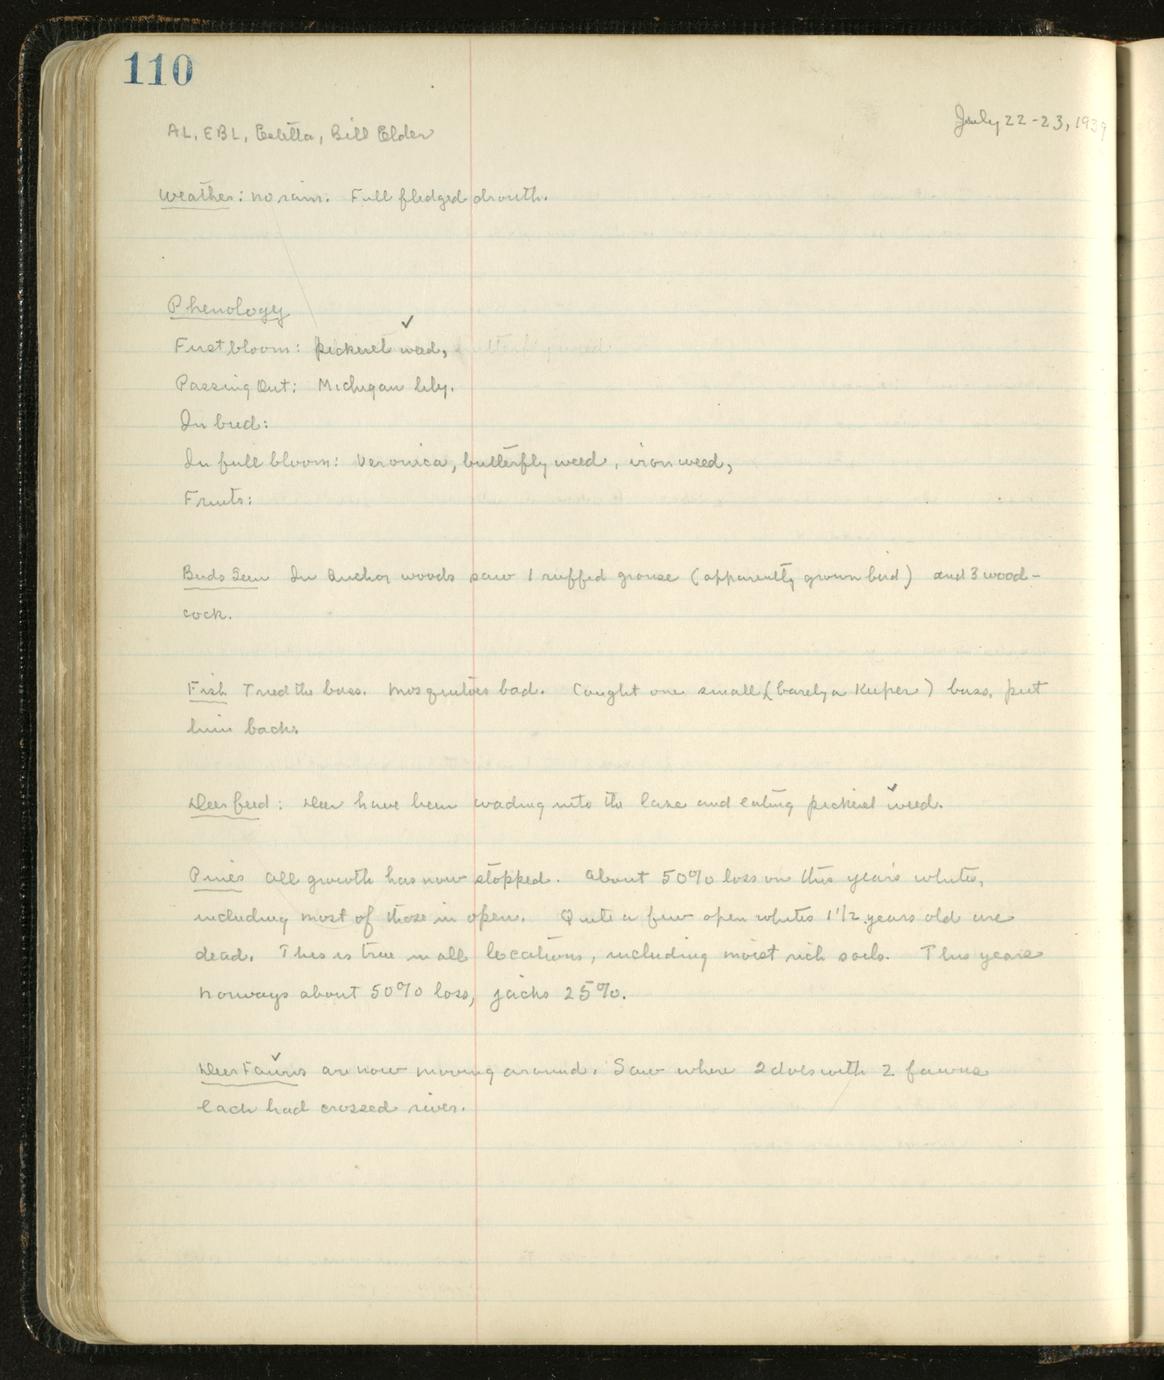 110
July 22-23, 1939
AL, EBL, Estella, Bill Elder
Weather: no rain. Full fledged drouth.
Phenology
First bloom: pickerel weed,
Passing Out: Michigan lily.
In bud:
In full bloom: Veronica, butterfly weed, iron weed,
Fruits:
Birds Seen In Anchor woods saw 1 ruffed grouse (apparently grown bird) and 3 wood-
cock.
Fish Tried the bass. Mosquitoes bad. Caught one small (barely a keeper) bass, put
him back.
Deer feed: Deer have been wading into the lake and eating pickerel weed.
Pines All growth has now stopped. About 50% loss on this year's whites,
including most of those in open. Quite a few open whites 1 1/2 years old are
dead. This is true in all locations, including moist rich soils. This years
Norways about 50% loss, jacks 25%.
Deer Fawns are now moving around. Saw where 2 does with 2 fawns
each had crossed river.